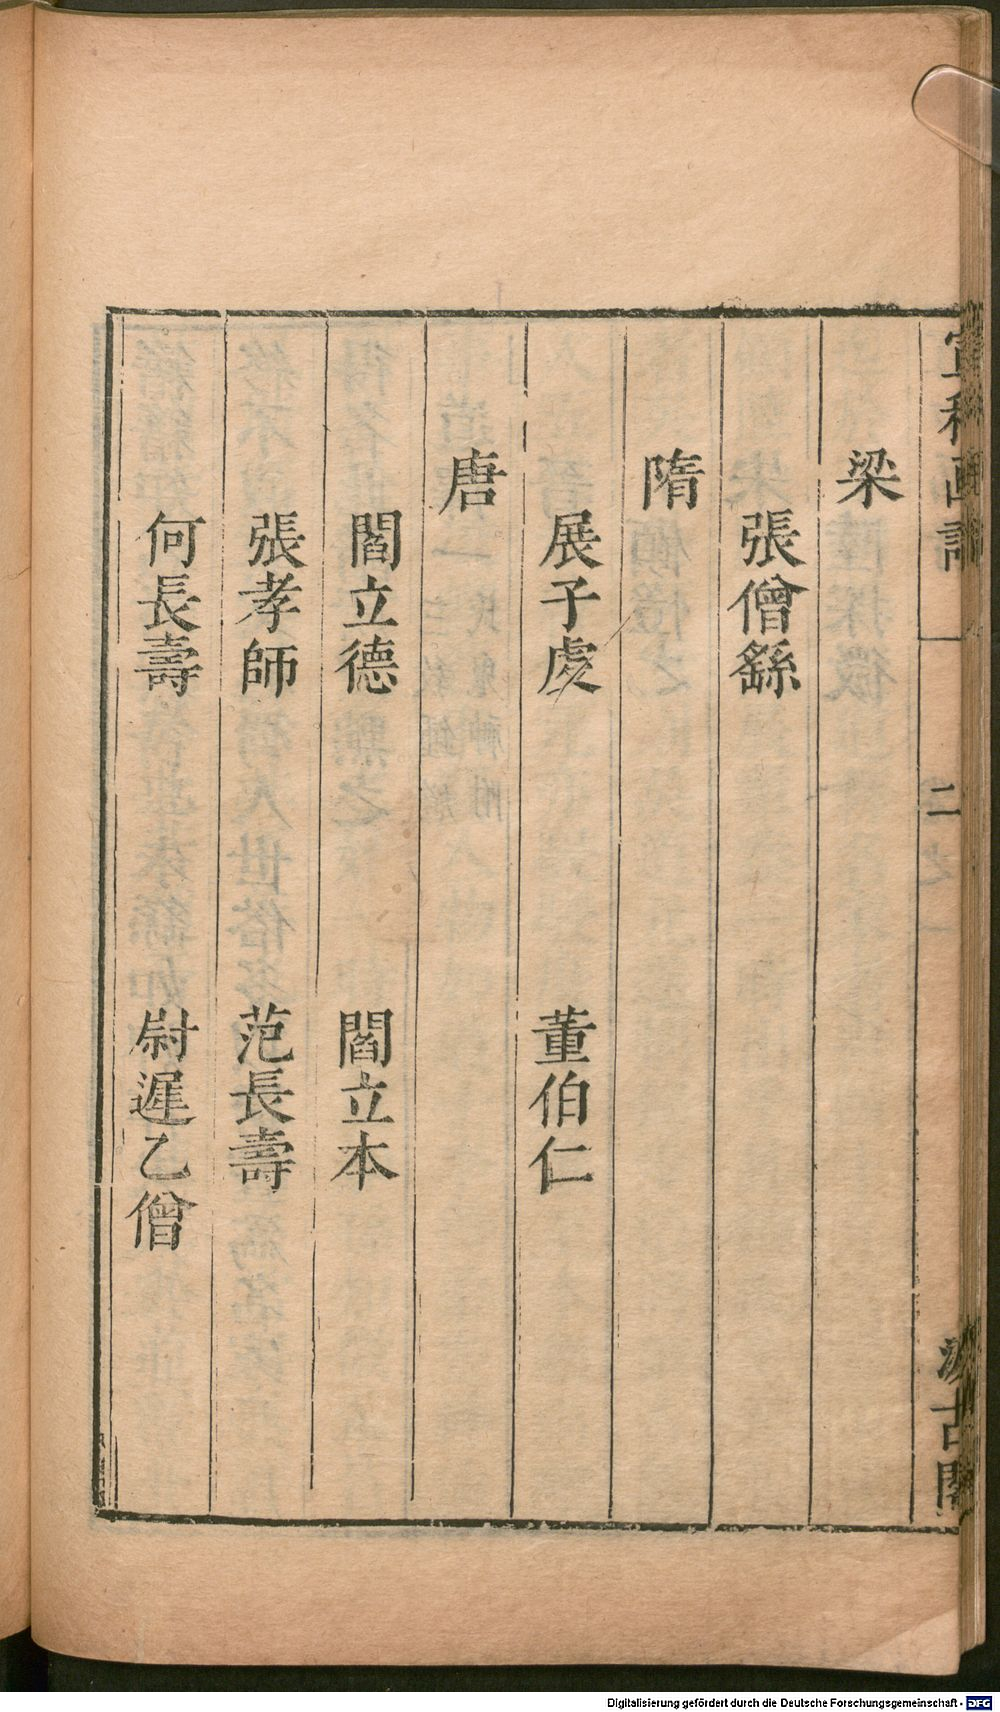 宣和畫譜 二 汲古閣
梁
張僧繇
隋
展子虔 董伯仁
唐
閻立德 閻立本
張孝師 范長壽
何長壽 尉遲乙僧
Digitalisierung gefördert durch die Deutsche Forschungsgemeinschaft - DFG